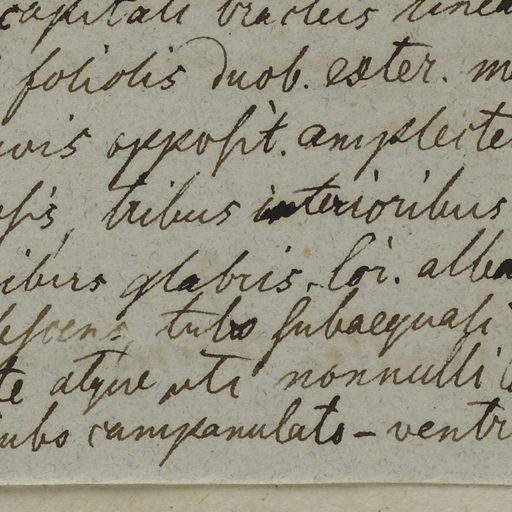 capitali bracteis linea
foliolis duob. exter. m
uis opposit. amplecte
tribus interioribus
ibus glabris. Cor. alba
escens, tubo subaequali
te atque uti nonnulli
tubo campanulato - ventr